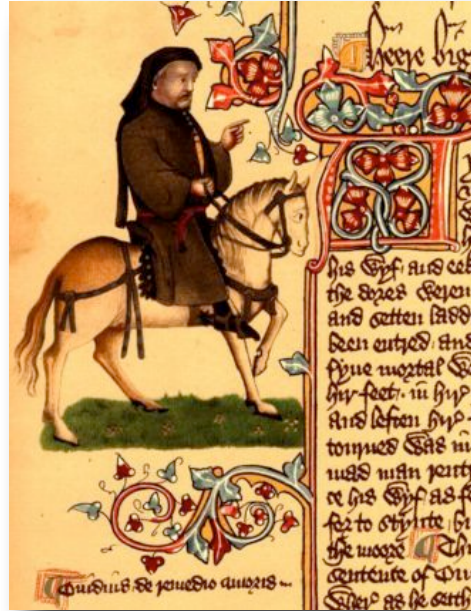 Heere big
his wyf, and eek
the dores weren
and setten ladd
been entred, and
fyue mortal wo
hir feet, in hir
and leften hir
tourned was in
mad man rente
his wyf as f
for to stynte hi
the moore ¶ Thi
sentence of Oui
Wher as he seith
¶ Ouidius de remedio amoris